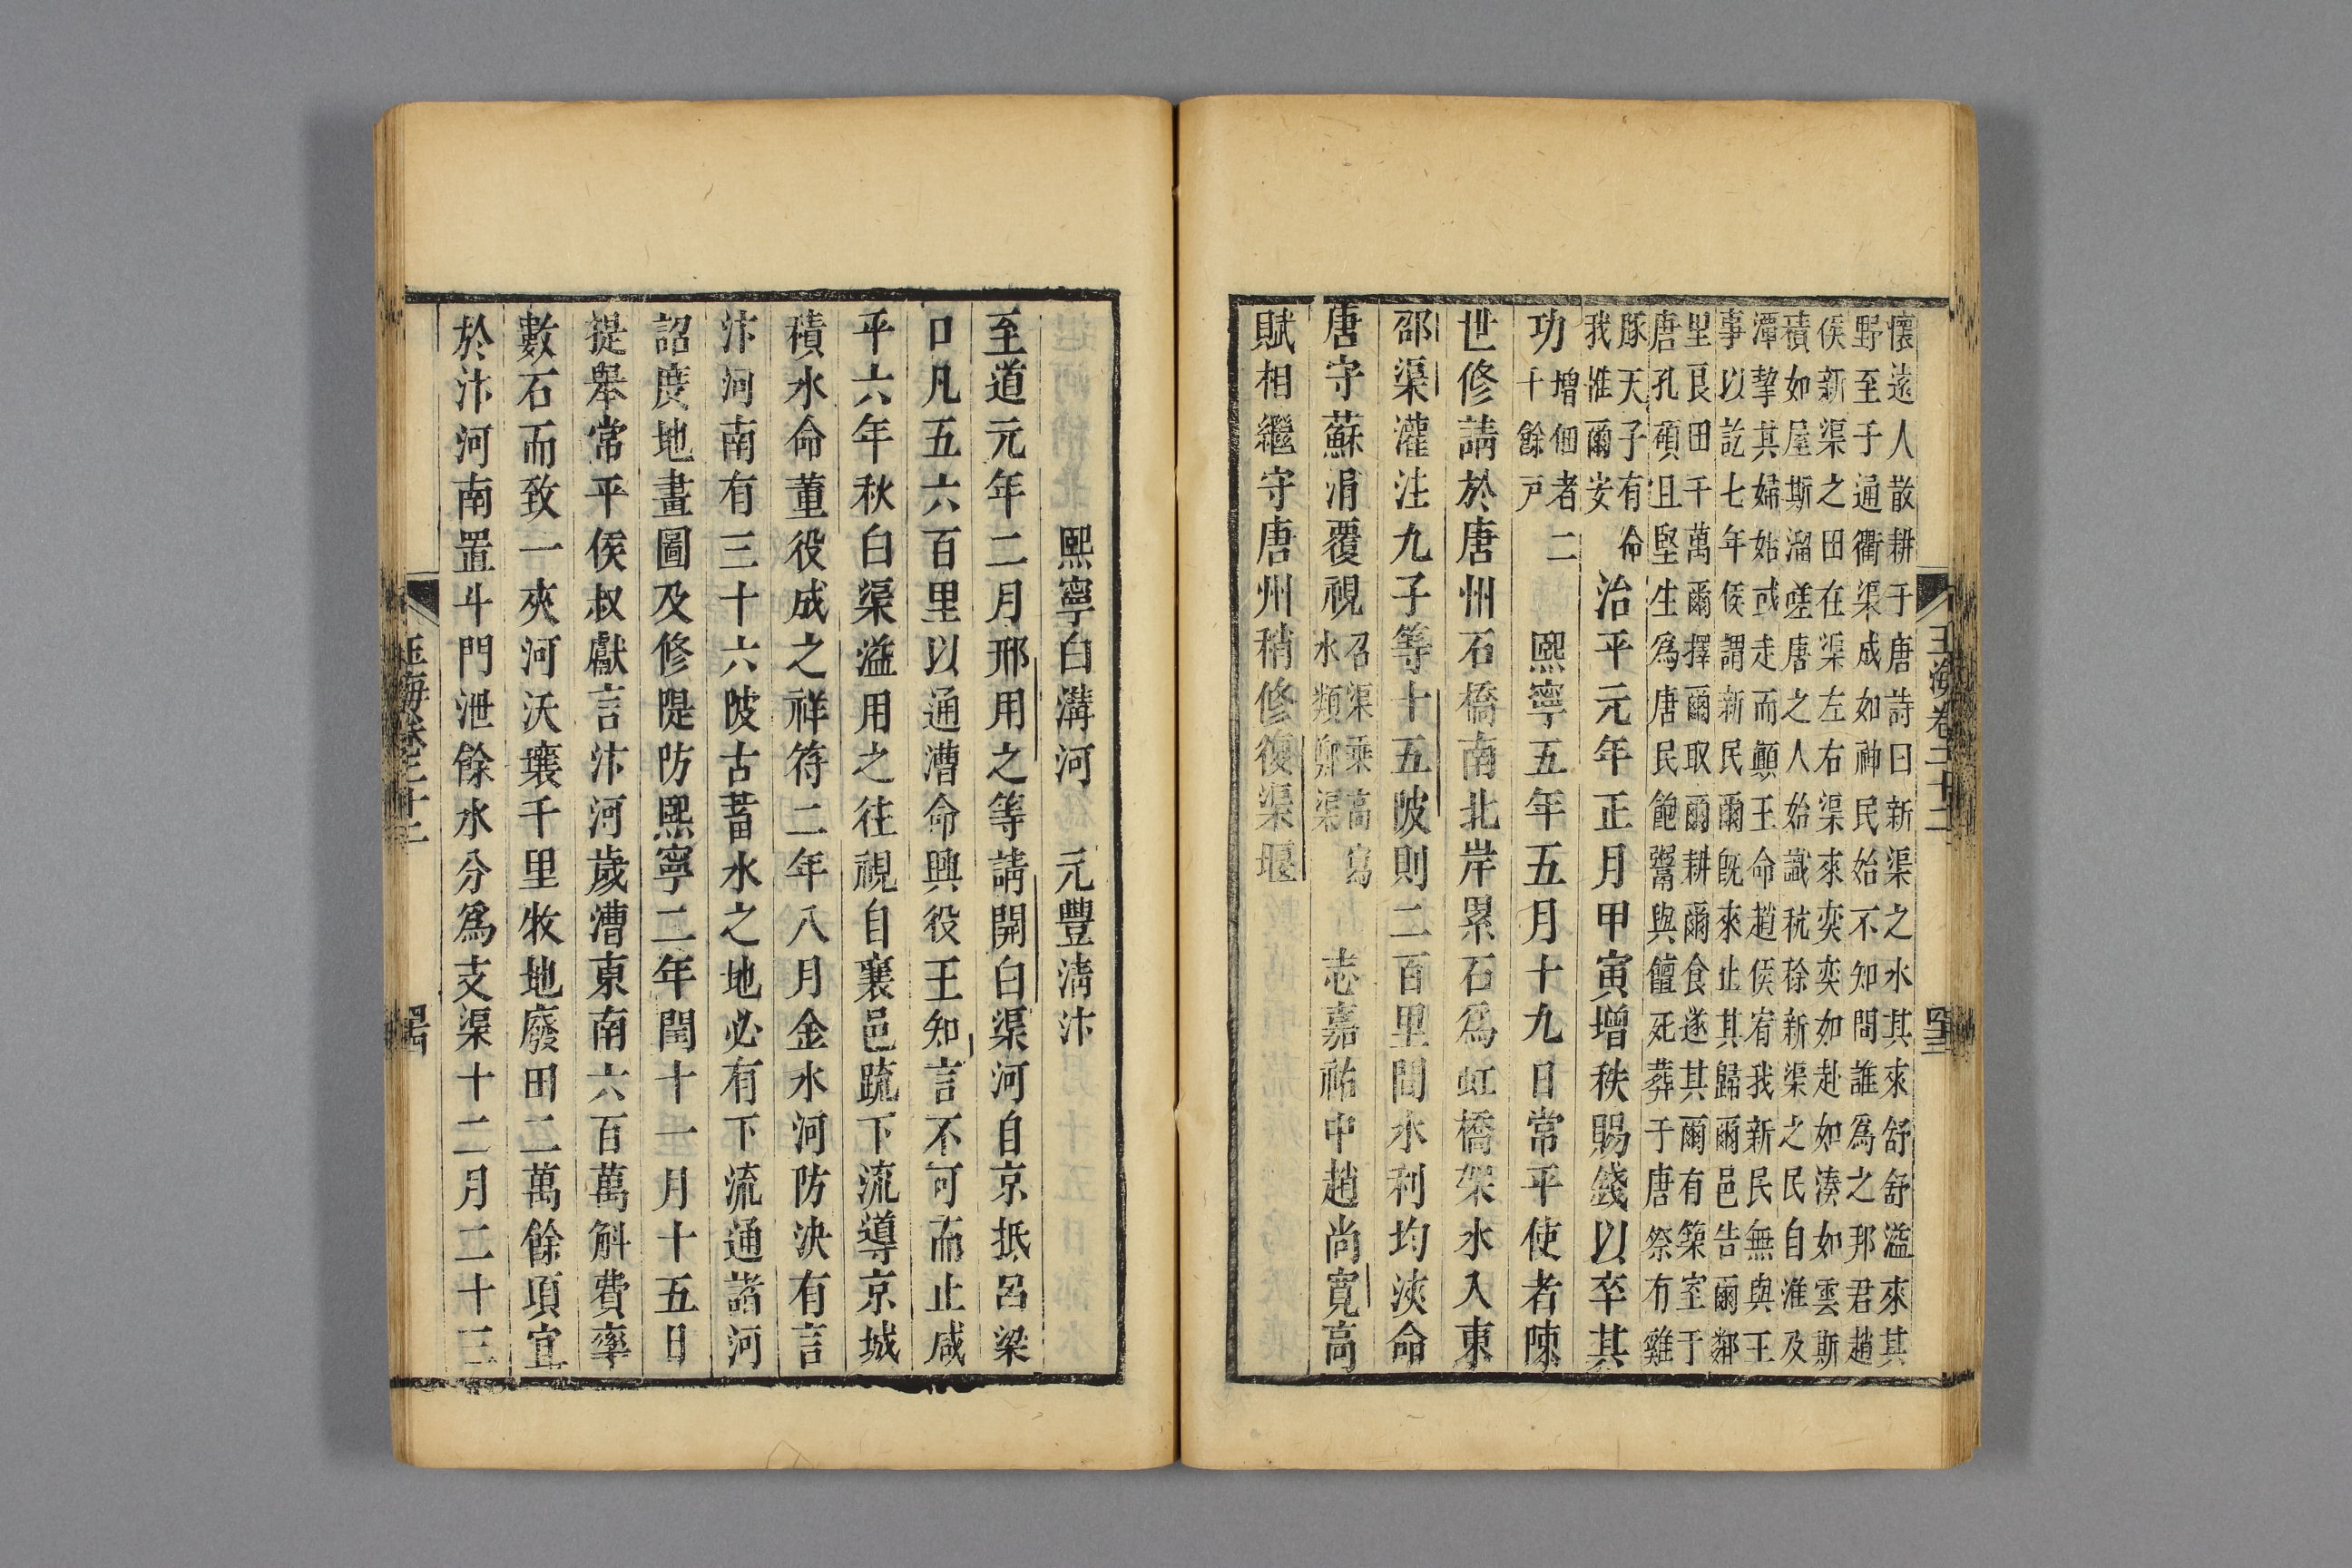 懷遠人散耕于唐詩曰新渠之水其來舒舒溢來其
野至于通衢渠成如神民始不知問誰爲之邦君趙
侯新渠之田在渠左右渠來奕奕如赴如湊如雲斯
積如屋斯溜嗟唐之人始識秔稌新渠之民自淮及
潭挈其婦姑或走而顛王命趙侯宥我新民無與王
事以訖七年侯謂新民爾旣來止其歸爾邑告爾鄰
里良田千萬爾擇爾取爾耕爾食遂其爾有築室于
唐孔碩且堅生爲唐民飽鬻與饘死葬于唐祭有雞
豚天子有命
我惟爾安
治平元年正月甲寅增秩賜錢以卒其
功
增佃者二
千餘戸
熙寧五年五月十九日常平使者陳
世修請於唐州石橋南北岸累石爲虹橋架水入東
邵渠灌注九子等十五陂則二百里間水利均浹命
唐守蘇涓覆視
召渠乗高寫
水類鄭渠
志嘉祐中趙尚寛高
賦相繼守唐州稍修復渠堰
玉海卷二十二
四三
熙寧白溝河 元豐淸汴
至道元年二月邢用之等請開白渠河自京抵呂梁
口凡五六百里以通漕命興役王知言不可而止咸
平六年秋白渠溢用之往視自襄邑疏下流導京城
積水命董役成之祥符二年八月金水河防決有言
汴河南有三十六陂古蓄水之地必有下流通諸河
詔度地畫圖及修隄防熙寧二年閏十一月十五日
提舉常平侯叔獻言汴河歲漕東南六百萬斛費率
數石而致一夾河沃壤千里牧地廢田二萬餘項宜
於汴河南置斗門泄餘水分爲支渠十二月二十三
玉海卷二十二